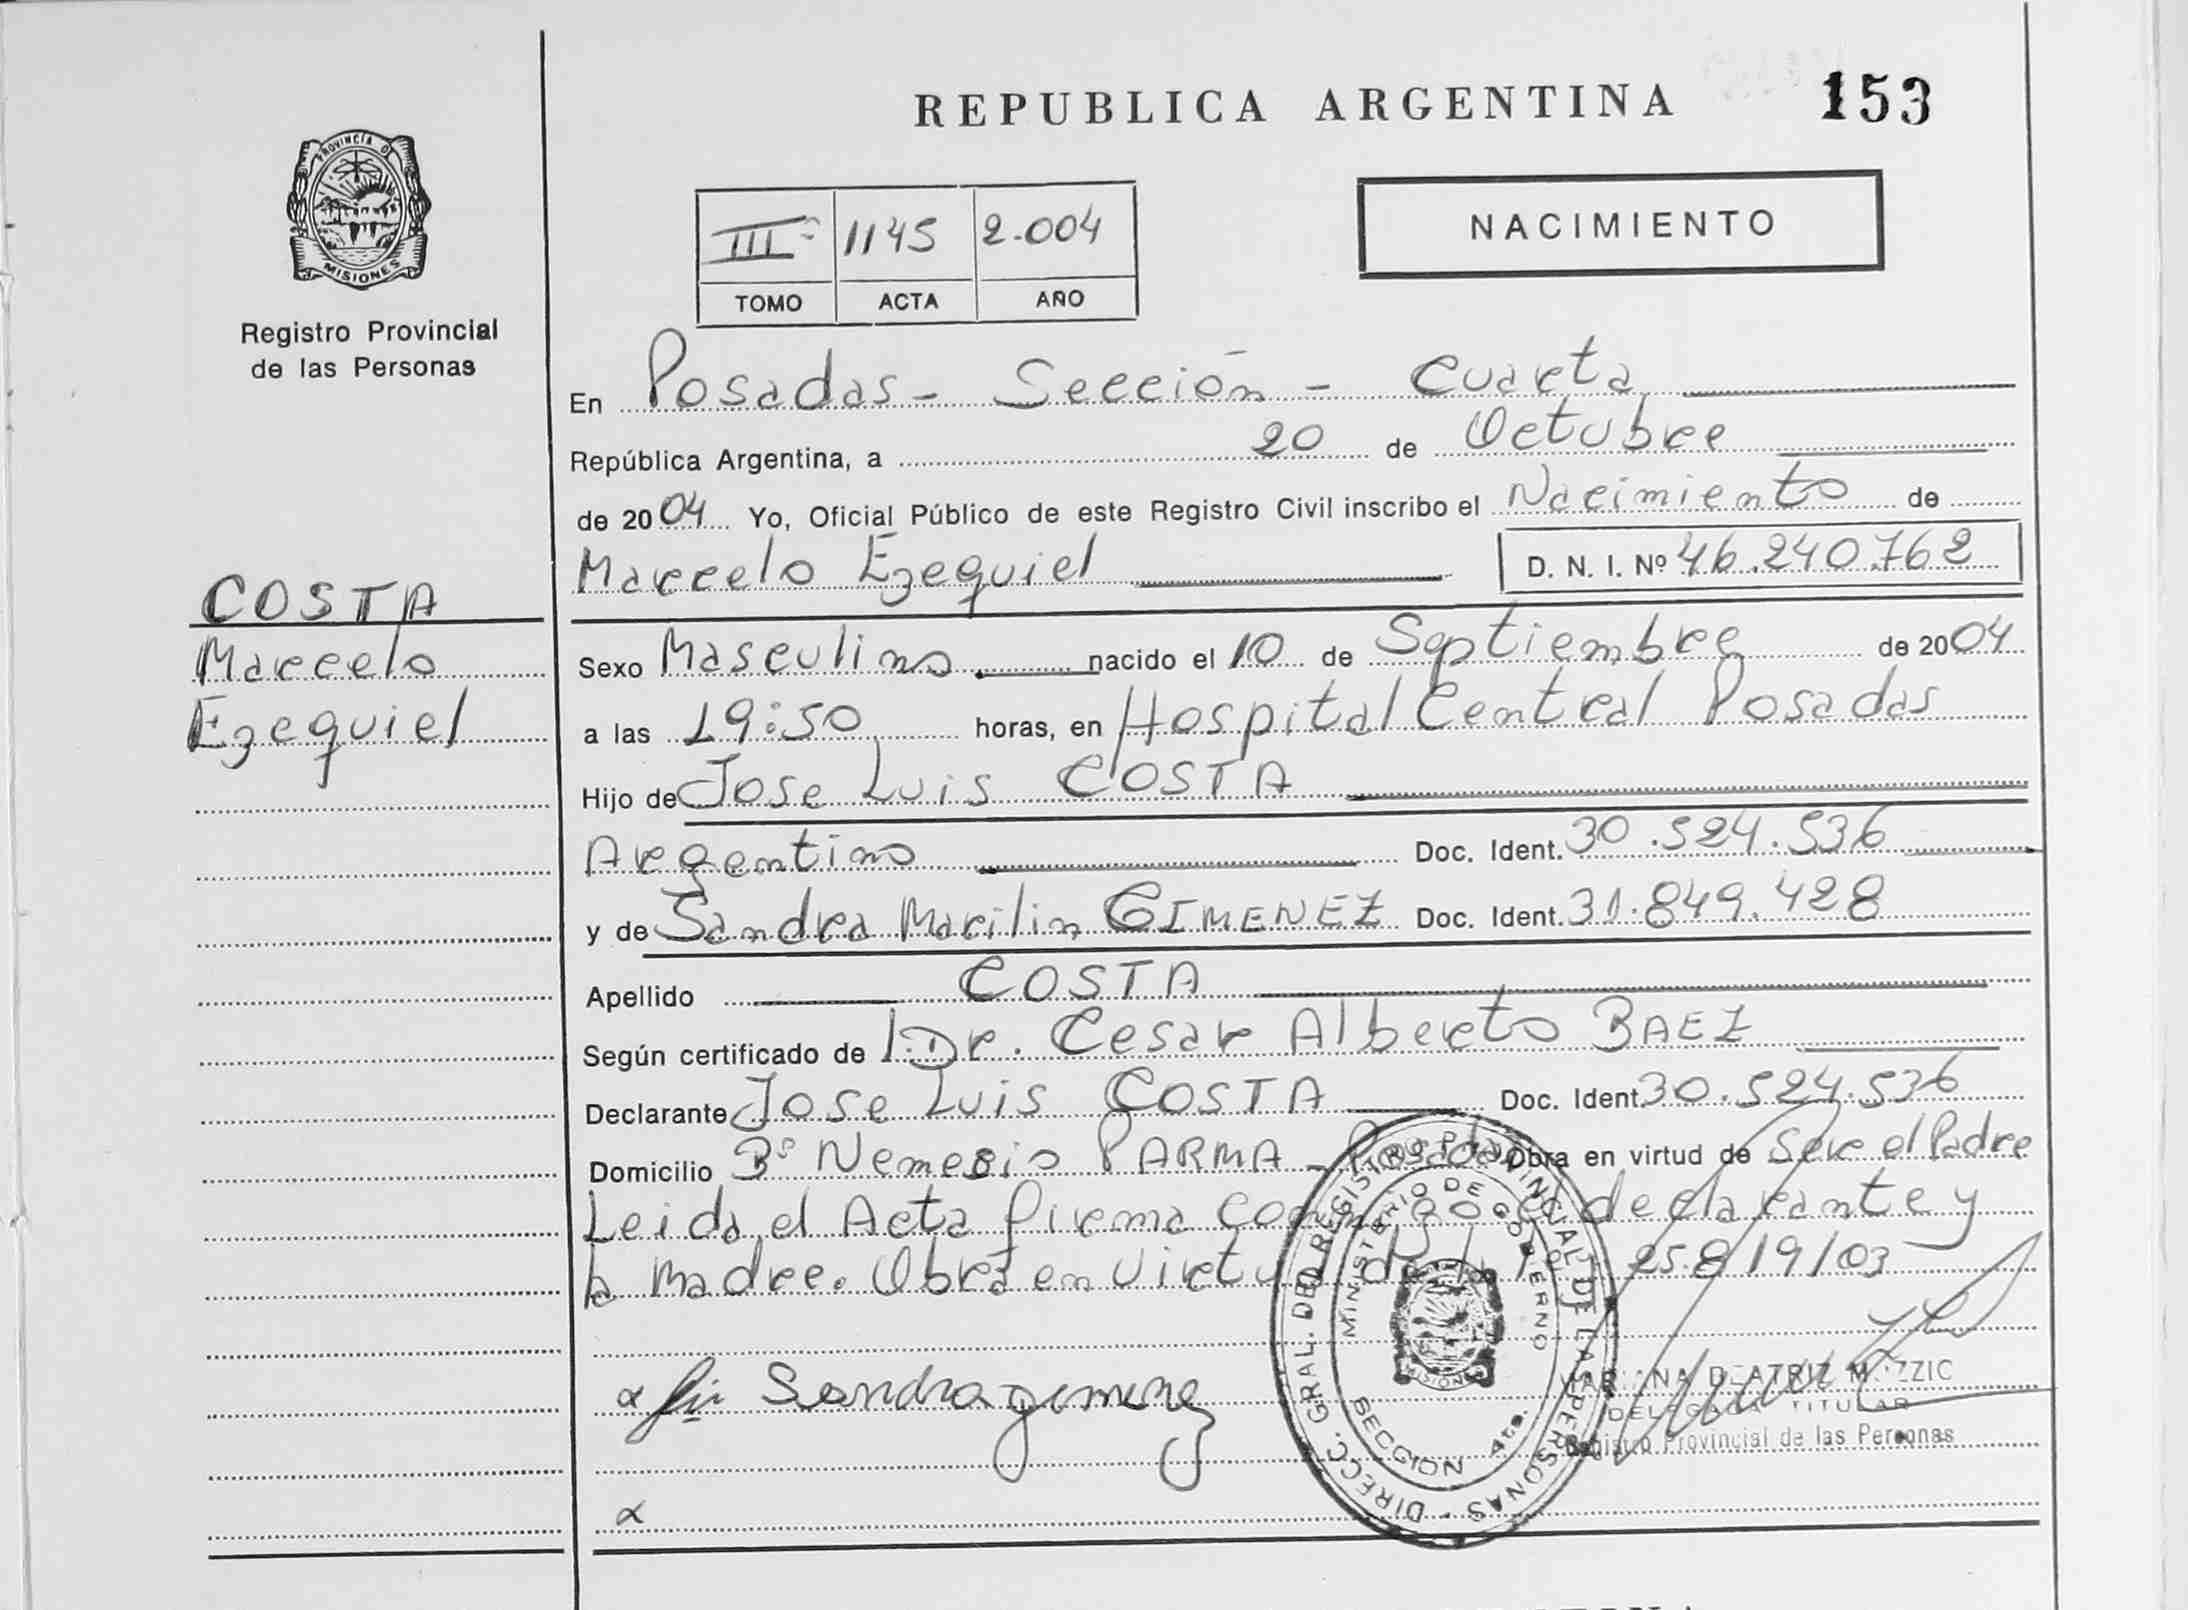 REPUBLICA ARGENTINA 153
PROVINCIA D MISIONES
Registro Provincial
de las Personas
III 1145 2.004
TOMO ACTA AÑO
NACIMIENTO
En Posadas - Sección - Cuarta
República Argentina, a 20 de Octubre
de 2004 Yo, Oficial Público de este Registro Civil inscribo el Nacimiento de
Marcelo Ezequiel D. N. I. Nº 46.240.762
COSTA
Marcelo
Ezequiel
Sexo Masculino nacido el 10 de Septiembre de 2004
a las 19:50 horas, en Hospital Central Posadas
Hijo de Jose Luis COSTA
Argentino Doc. Ident. 30.524.536
y de Sandra Marilin GIMENEZ Doc. Ident. 31.849.428
Apellido COSTA
Según certificado de Dr. Cesar Alberto BAEZ
Declarante Jose Luis COSTA Doc. Ident. 30.524.536
Domicilio Bº Nemesio PARMA - Posadas Obra en virtud de Ser el Padre
Leida el Acta firma declarante y
la madre. Obra en virtud de 25.819/03
Sandra gimenez
DIRECC. GRAL. DEL REGISTRO PROVINCIAL DE LAS PERSONAS
MINISTERIO DE GOBIERNO
SECCION 4ta.
BEATRIZ
DELEGADA TITULAR
Registro Provincial de las Personas